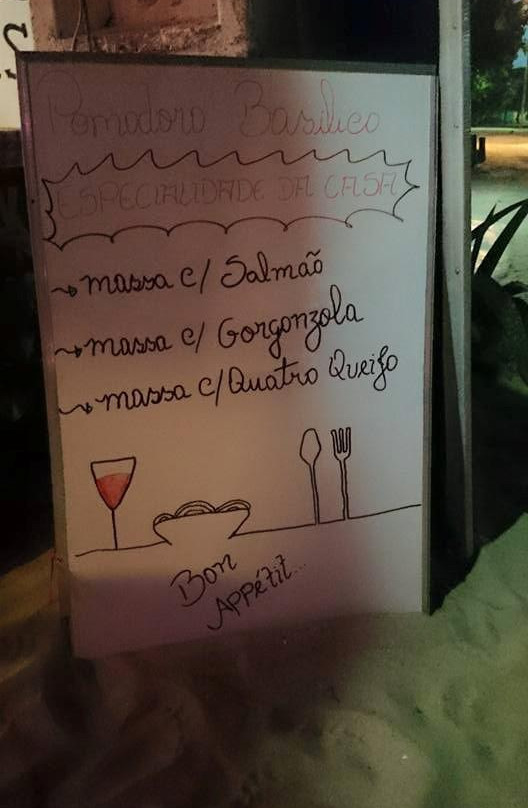 Pomodoro Basilico
ESPECIALIDADE DA CASA
→ massa c/ Salmão
→ massa c/ Gorgonzola
→ massa c/ Quatro Queijo
Bon
APPétit...